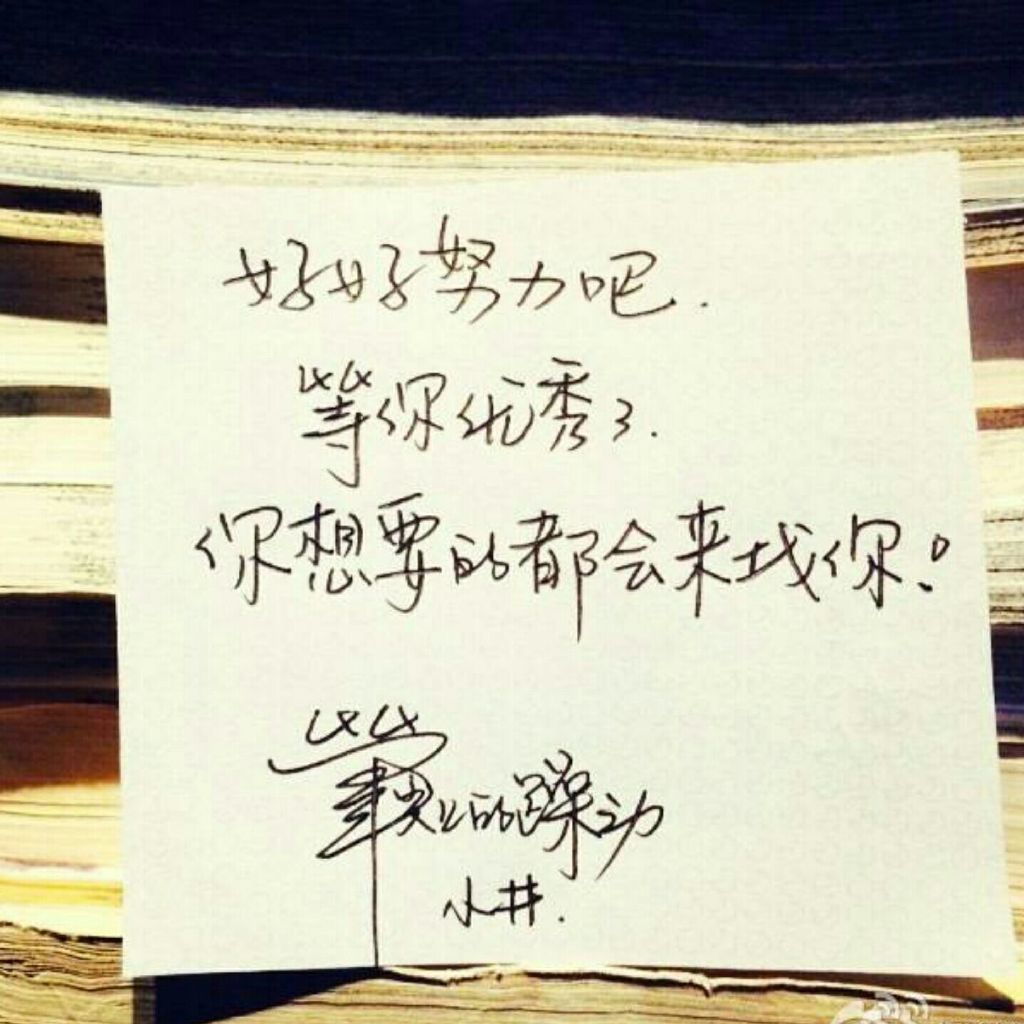 好好努力吧.
等你优秀了.
你想要的都会来找你!
笔尖上的躁动
小井.